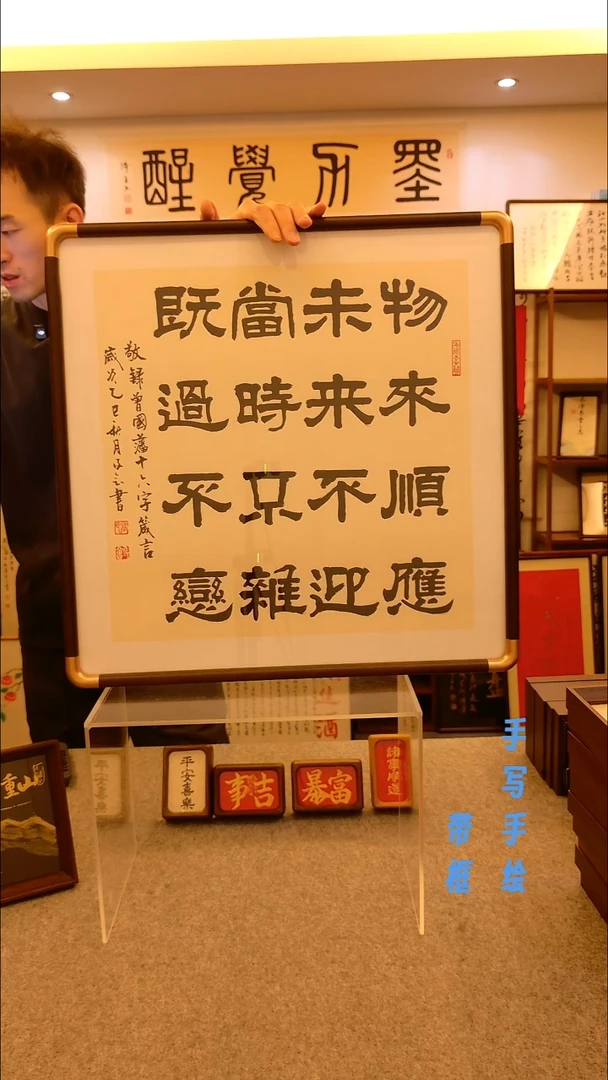 覺醒
物來順應
未来不迎
當時只雜
既過不戀
敬録曾國藩十六字箴言
歲次乙巳秋月
書
平安喜樂
平安喜樂
吉事
暴富
諸事順遂
重山
酒
手写手绘
带框